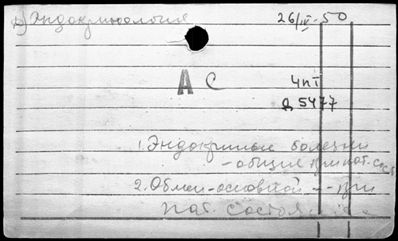 д) Эндокринология
26/IV-50
А С
Чп1
Д 5477
1. Эндокринные болезни
- общие при пат. сост.
2. Обмен-основной -- при
пат. состоян.